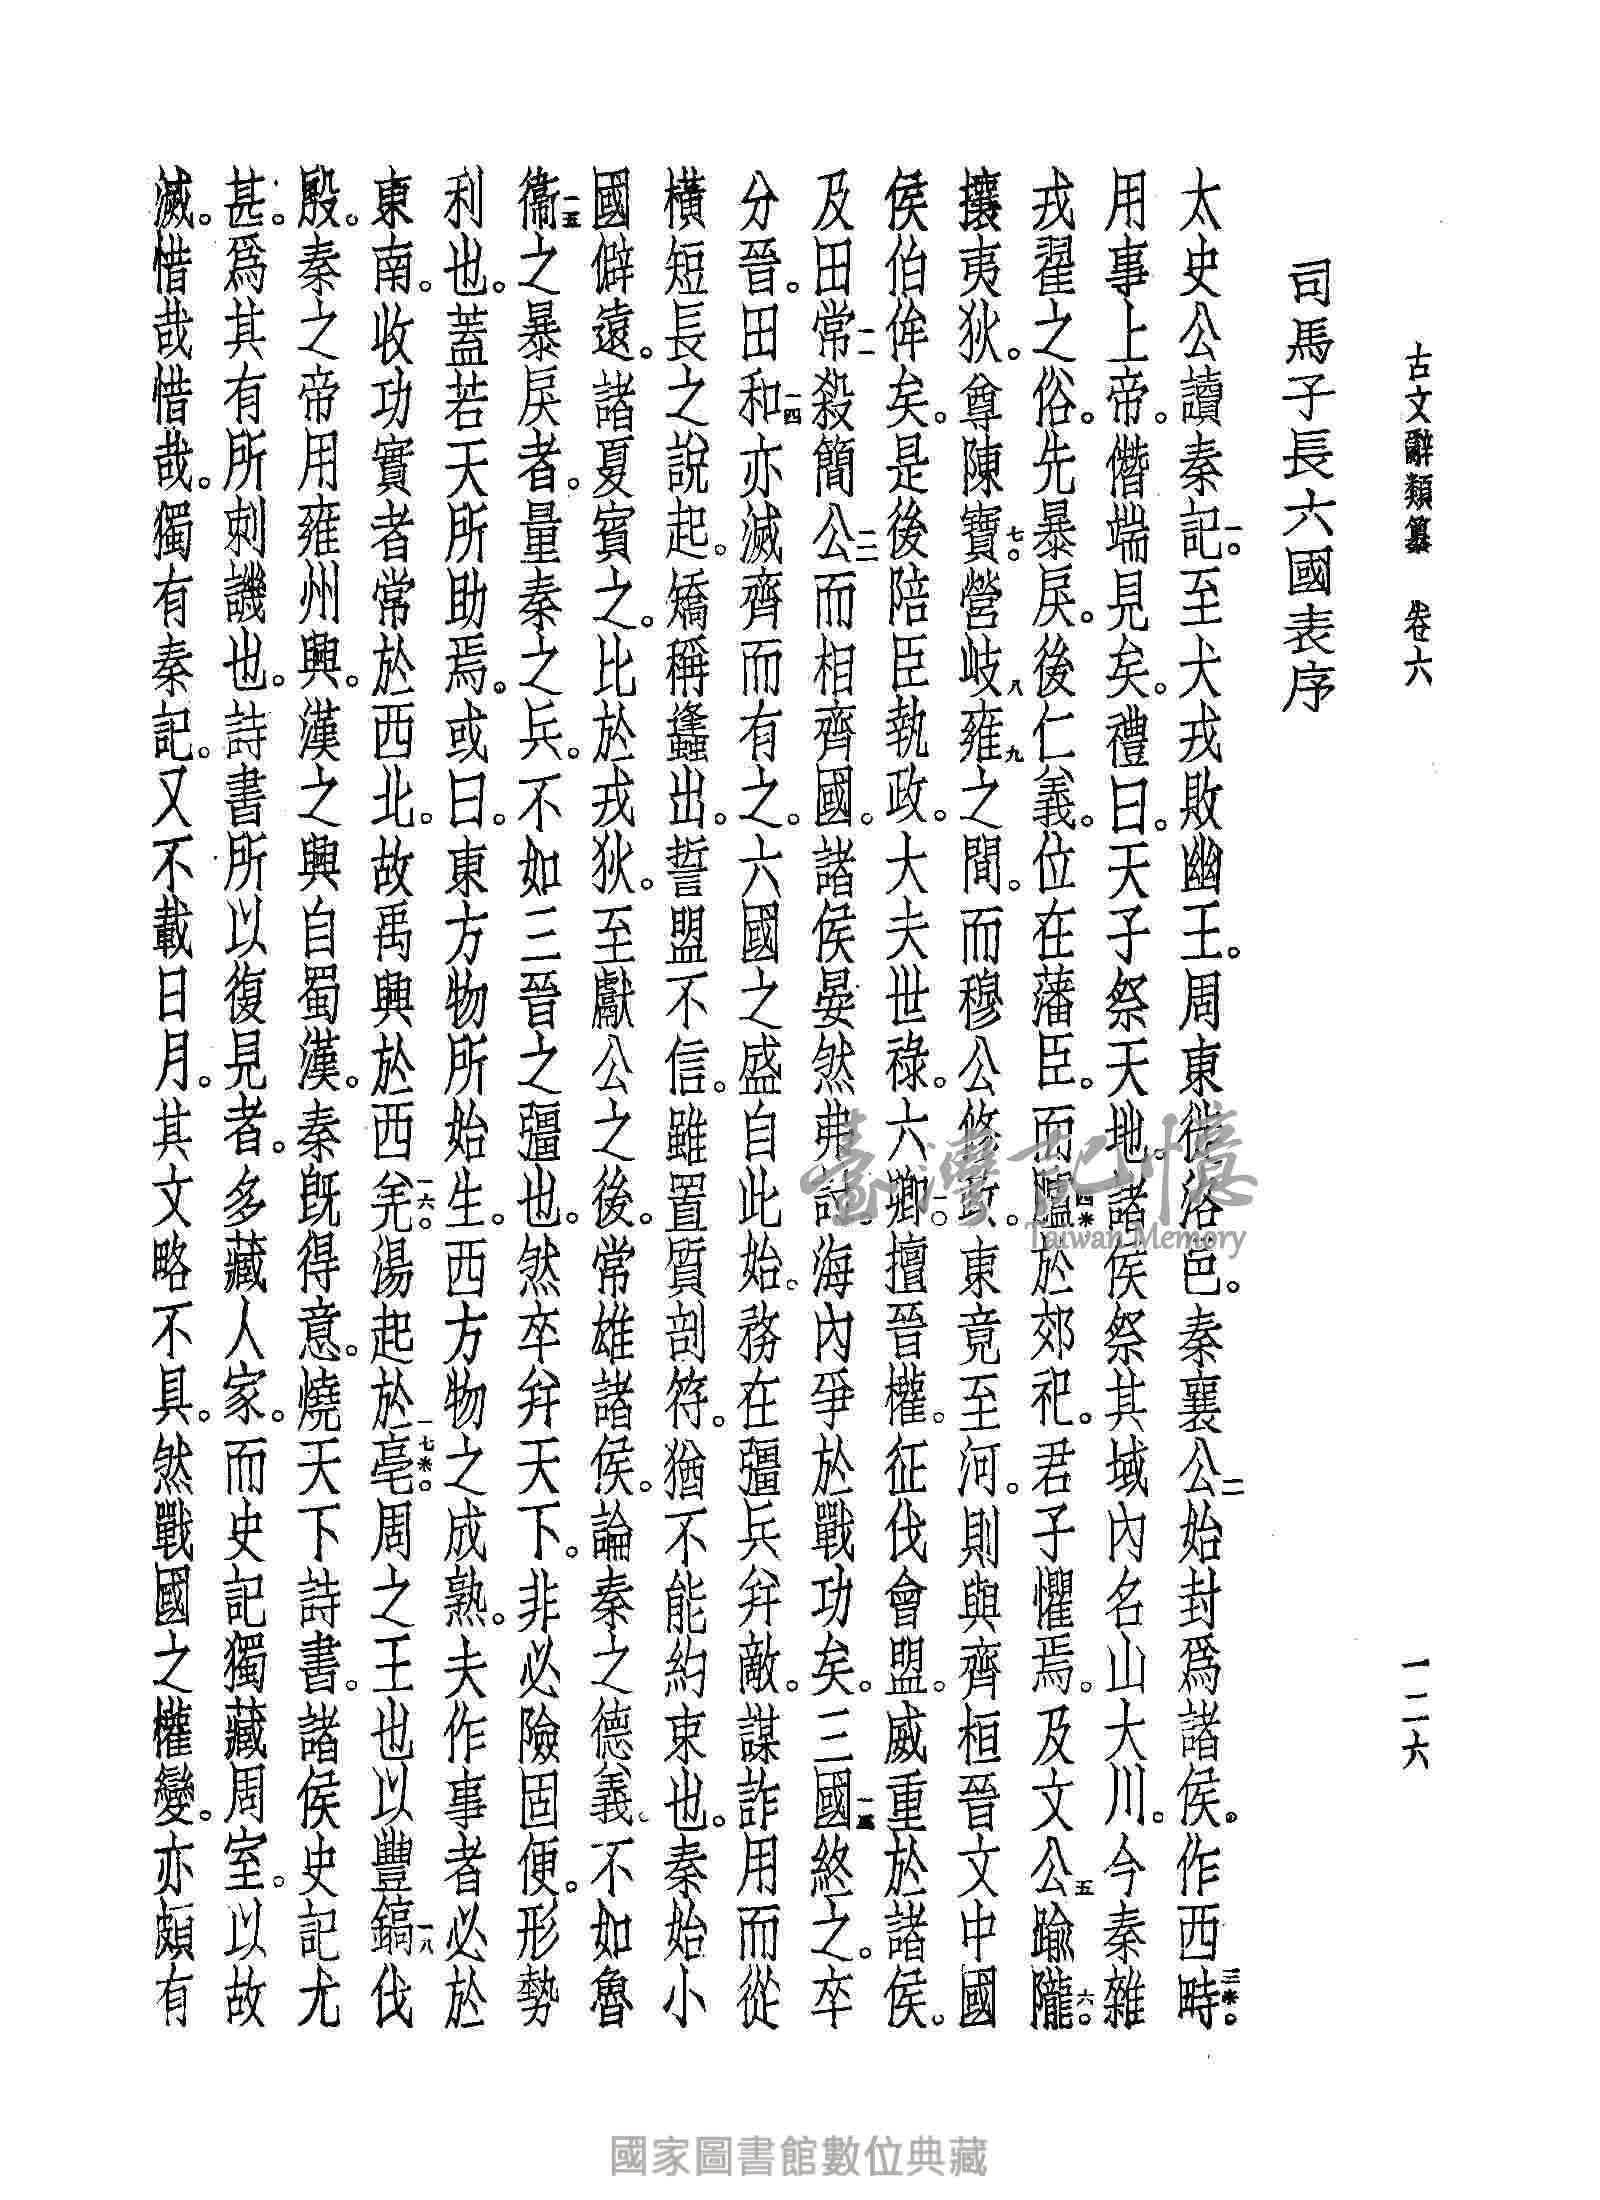 古文辭類纂　卷六
一二六
司馬子長六國表序
太史公讀秦記一。至犬戎敗幽王。周東徙洛邑。秦襄公二始封爲諸侯。作西畤三※。
用事上帝。僭端見矣。禮曰。天子祭天地。諸侯祭其域內名山大川。今秦雜
戎翟之俗。先暴戾。後仁義。位在藩臣。而臚四※於郊祀。君子懼焉。及文公五踰隴六。
攘夷狄。尊陳寶七。營岐八雍九之間。而穆公修政。東竟至河。則與齊桓晉文中國
侯伯侔矣。是後陪臣執政。大夫世祿。六卿一〇擅晉權。征伐會盟。威重於諸侯。
及田常一一殺簡公一二而相齊國。諸侯晏然弗討。海內爭於戰功矣。三國一三終之。卒
分晉。田和一四亦滅齊而有之。六國之盛自此始。務在彊兵幷敵。謀詐用而從
橫短長之說起。矯稱蠭出。誓盟不信。雖置質剖符。猶不能約束也。秦始小
國僻遠。諸夏賓之。比於戎狄。至獻公之後。常雄諸侯。論秦之德義。不如魯
衞一五之暴戾者。量秦之兵。不如三晉之彊也。然卒幷天下。非必險固便。形勢
利也。蓋若天所助焉。或曰。東方物所始生。西方物之成熟。夫作事者必於
東南。收功實者常於西北。故禹興於西羌一六。湯起於亳一七※。周之王也以豐鎬一八伐
殷。秦之帝用雍州興。漢之興自蜀漢。秦旣得意。燒天下詩書。諸侯史記尤
甚。爲其有所刺譏也。詩書所以復見者。多藏人家。而史記獨藏周室。以故
滅。惜哉惜哉。獨有秦記。又不載日月。其文略不具。然戰國之權變。亦頗有
臺灣記憶
Taiwan Memory
國家圖書館數位典藏